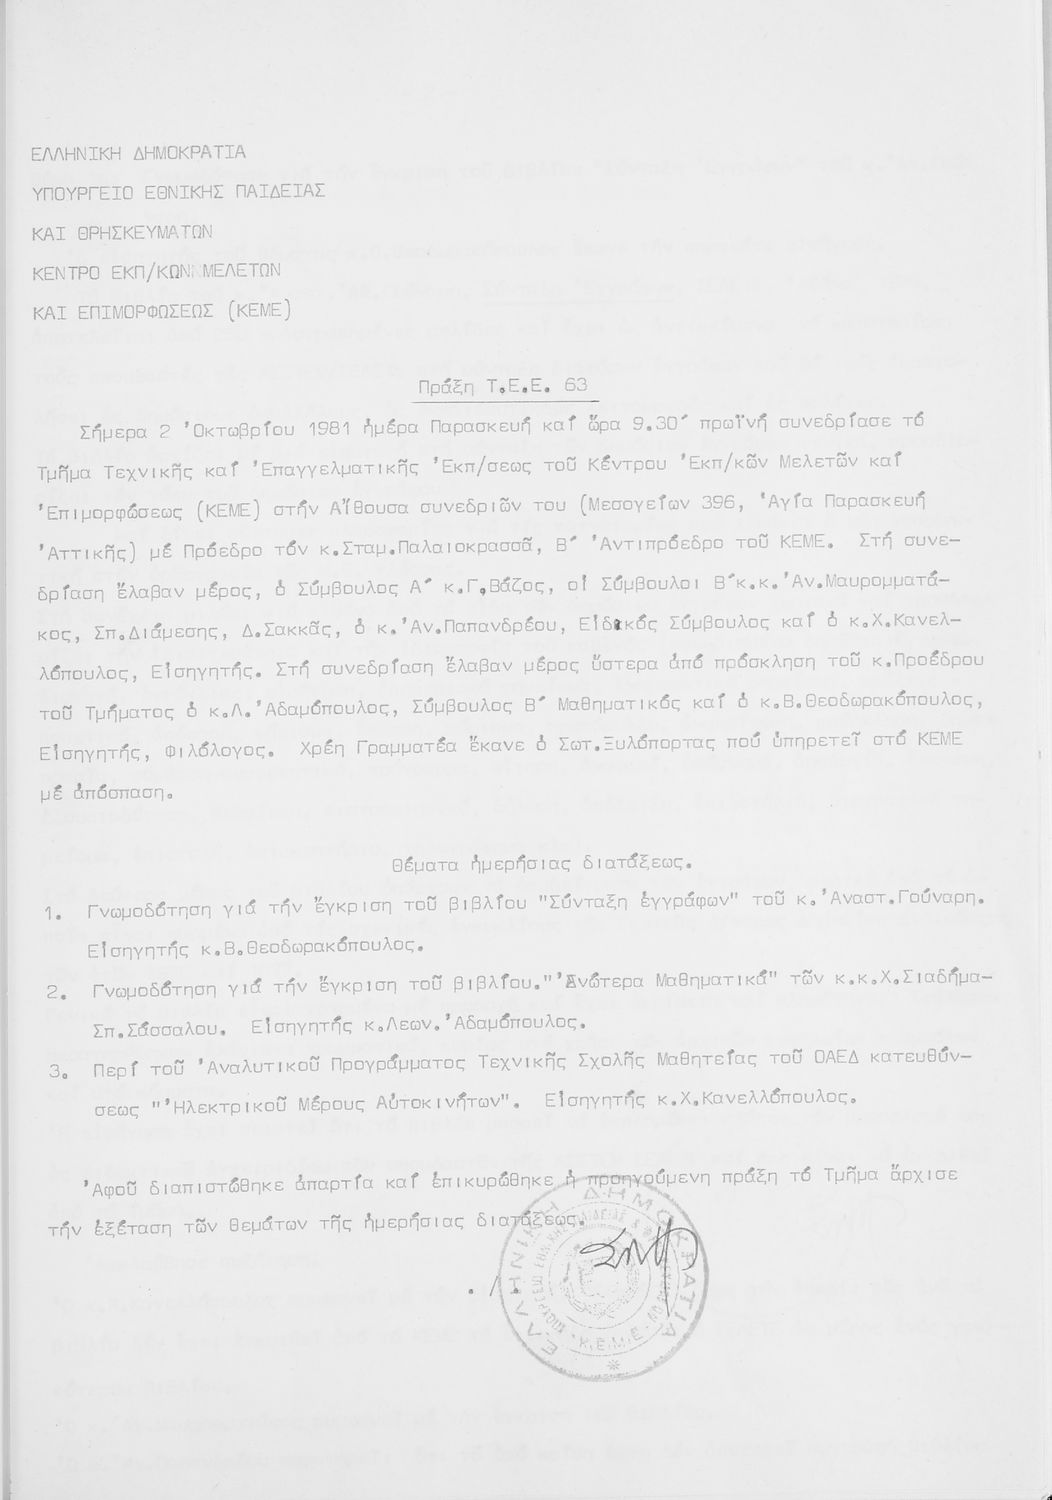 ΕΛΛΗΝΙΚΗ ΔΗΜΟΚΡΑΤΙΑ
ΥΠΟΥΡΓΕΙΟ ΕΘΝΙΚΗΣ ΠΑΙΔΕΙΑΣ
ΚΑΙ ΘΡΗΣΚΕΥΜΑΤΩΝ
ΚΕΝΤΡΟ ΕΚΠ/ΚΩΝ ΜΕΛΕΤΩΝ
ΚΑΙ ΕΠΙΜΟΡΦΩΣΕΩΣ (ΚΕΜΕ)
Πράξη Τ.Ε.Ε. 63
Σήμερα 2 Ὀκτωβρίου 1981 ἡμέρα Παρασκευή καί ὥρα 9.30΄ πρωϊνή συνεδρίασε τό
Τμῆμα Τεχνικῆς καί Ἐπαγγελματικῆς Ἐκπ/σεως τοῦ Κέντρου Ἐκπ/κῶν Μελετῶν καί
Ἐπιμορφώσεως (ΚΕΜΕ) στήν Αἴθουσα συνεδριῶν του (Μεσογείων 396, Ἁγία Παρασκευή
Ἀττικῆς) μέ Πρόεδρο τόν κ.Σταμ.Παλαιοκρασσᾶ, Β΄ Ἀντιπρόεδρο τοῦ ΚΕΜΕ. Στή συνε-
δρίαση ἔλαβαν μέρος, ὁ Σύμβουλος Α΄ κ.Γ.Βάζος, οἱ Σύμβουλοι Β΄κ.κ.Ἀν.Μαυρομματά-
κος, Σπ.Διάμεσης, Δ.Σακκᾶς, ὁ κ.Ἀν.Παπανδρέου, Εἰδικός Σύμβουλος καί ὁ κ.Χ.Κανελ-
λόπουλος, Εἰσηγητής. Στή συνεδρίαση ἔλαβαν μέρος ὕστερα ἀπό πρόσκληση τοῦ κ.Προέδρου
τοῦ Τμήματος ὁ κ.Λ.Ἀδαμόπουλος, Σύμβουλος Β΄ Μαθηματικός καί ὁ κ.Β.Θεοδωρακόπουλος,
Εἰσηγητής, Φιλόλογος. Χρέη Γραμματέα ἔκανε ὁ Σωτ.Ξυλόπορτας πού ὑπηρετεῖ στό ΚΕΜΕ
μέ ἀπόσπαση.
Θέματα ἡμερήσιας διατάξεως.
1. Γνωμοδότηση γιά τήν ἔγκριση τοῦ βιβλίου "Σύνταξη ἐγγράφων" τοῦ κ.Ἀναστ.Γούναρη.
Εἰσηγητής κ.Β.Θεοδωρακόπουλος.
2. Γνωμοδότηση γιά τήν ἔγκριση τοῦ βιβλίου."Ἀνώτερα Μαθηματικά" τῶν κ.κ.Χ.Σιαδήμα-
Σπ.Σάσσαλου. Εἰσηγητής κ.Λεων.Ἀδαμόπουλος.
3. Περί τοῦ Ἀναλυτικοῦ Προγράμματος Τεχνικῆς Σχολῆς Μαθητείας τοῦ ΟΑΕΔ κατευθύν-
σεως "Ἠλεκτρικοῦ Μέρους Αὐτοκινήτων". Εἰσηγητής κ.Χ.Κανελλόπουλος.
Ἀφοῦ διαπιστώθηκε ἀπαρτία καί ἐπικυρώθηκε ἡ προηγούμενη πράξη τό Τμῆμα ἄρχισε
τήν ἐξέταση τῶν θεμάτων τῆς ἡμερήσιας διατάξεως.
./.
ΕΛΛΗΝΙΚΗ ΔΗΜΟΚΡΑΤΙΑ
Κ.Ε.Μ.Ε.